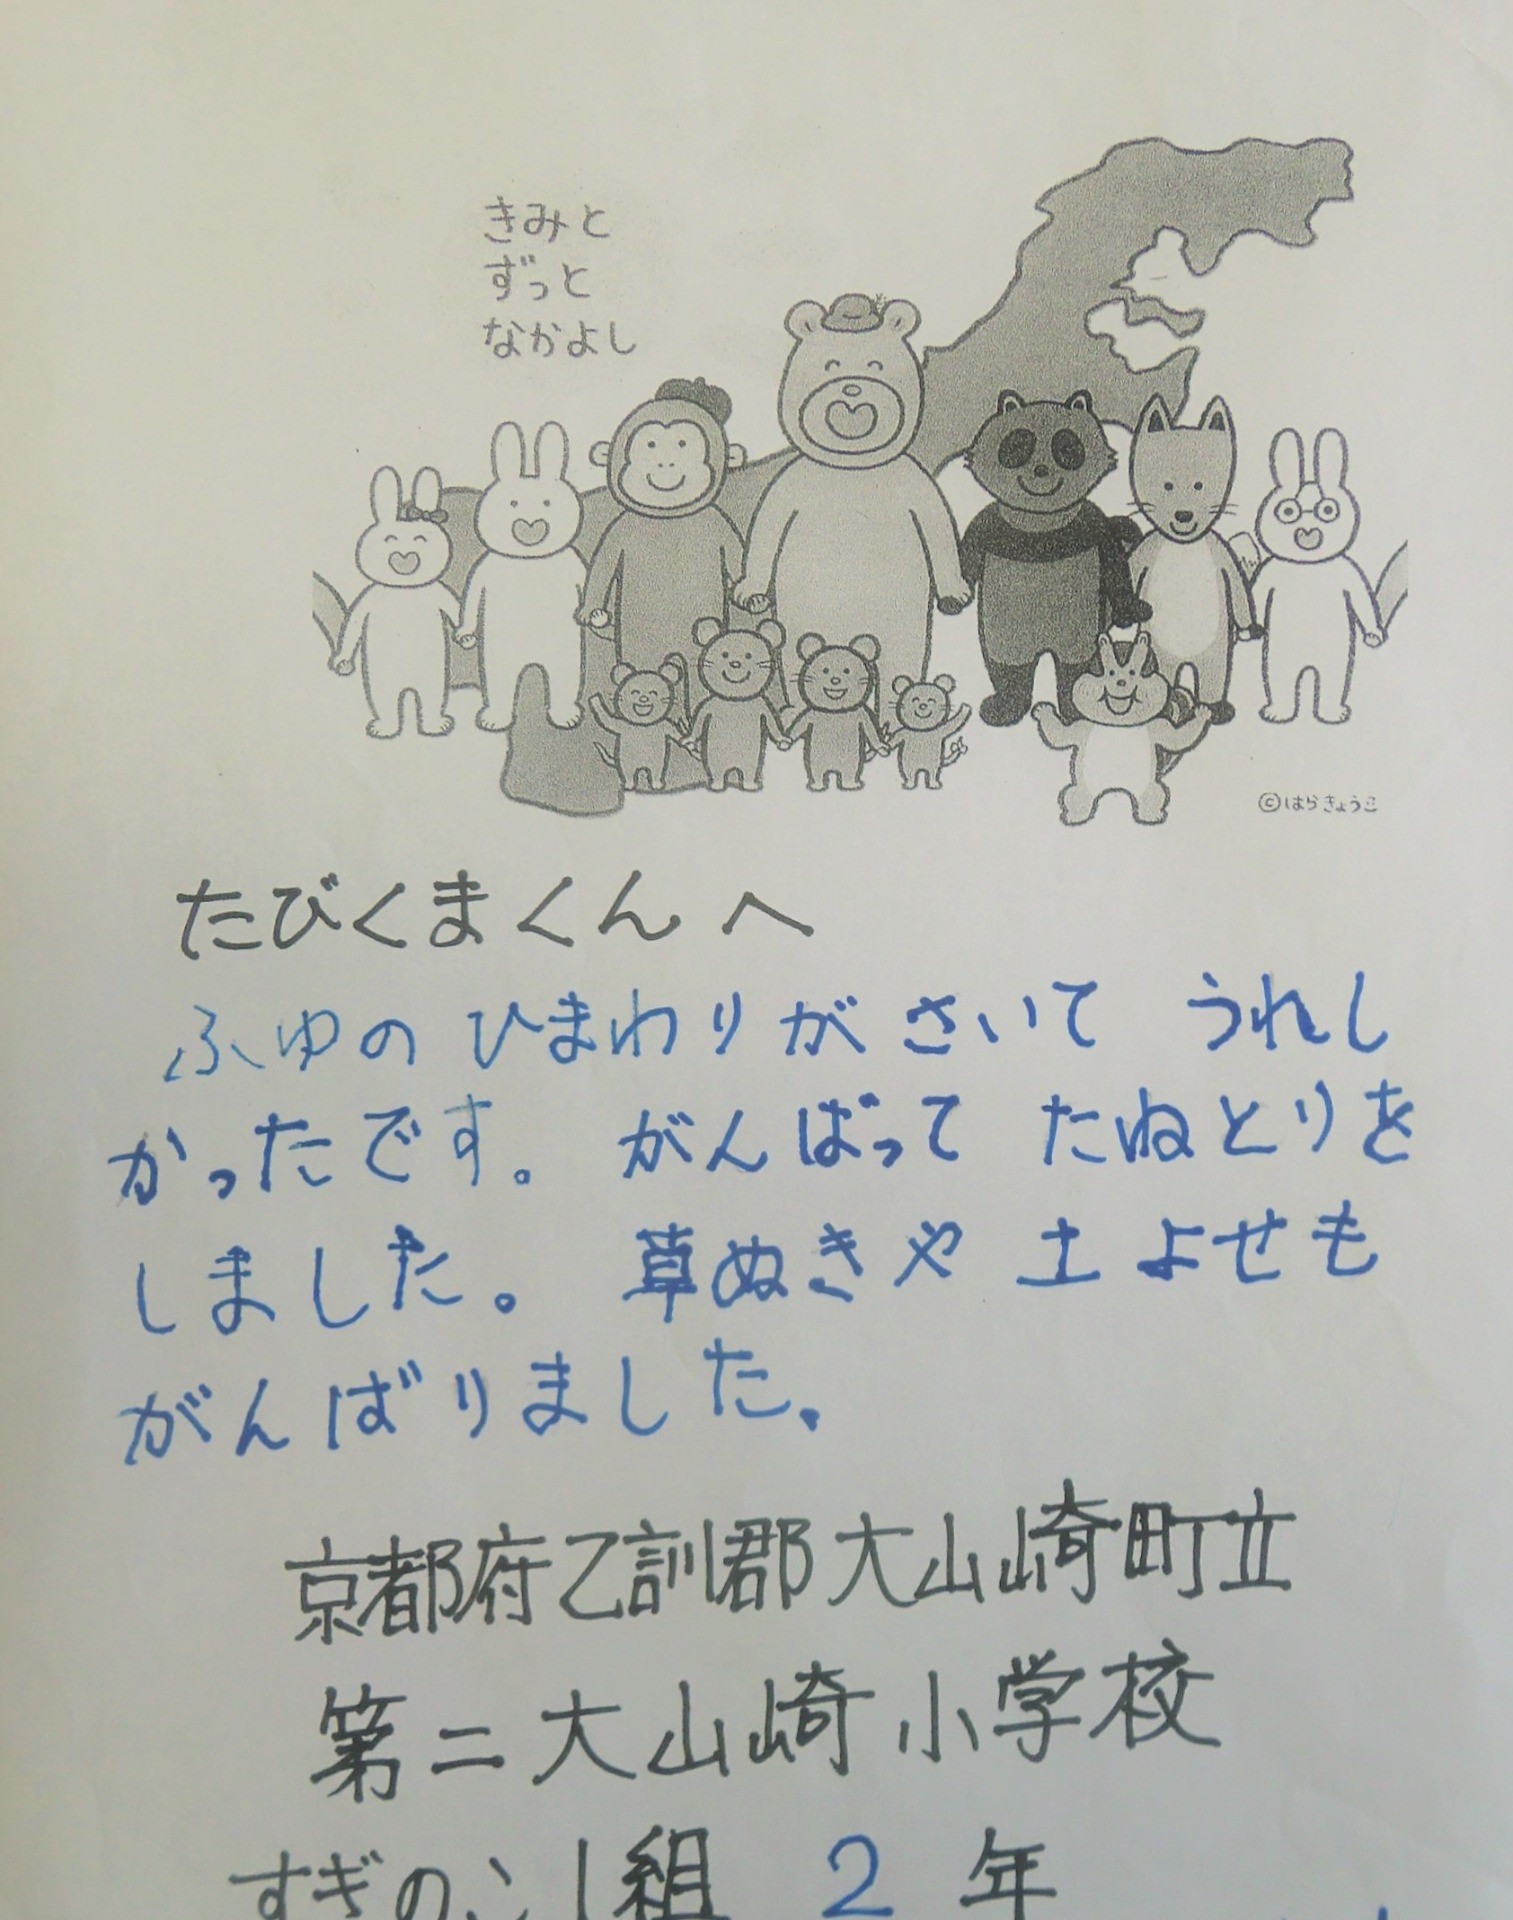 きみと
ずっと
なかよし
©はらきょうこ
たびくまくんへ
ふゆの ひまわりが さいて うれし
かったです。 がんばって たねとりを
しました。 草ぬきや 土よせも
がんばりました。
京都府乙訓郡大山崎町立
第二大山崎小学校
組 2 年